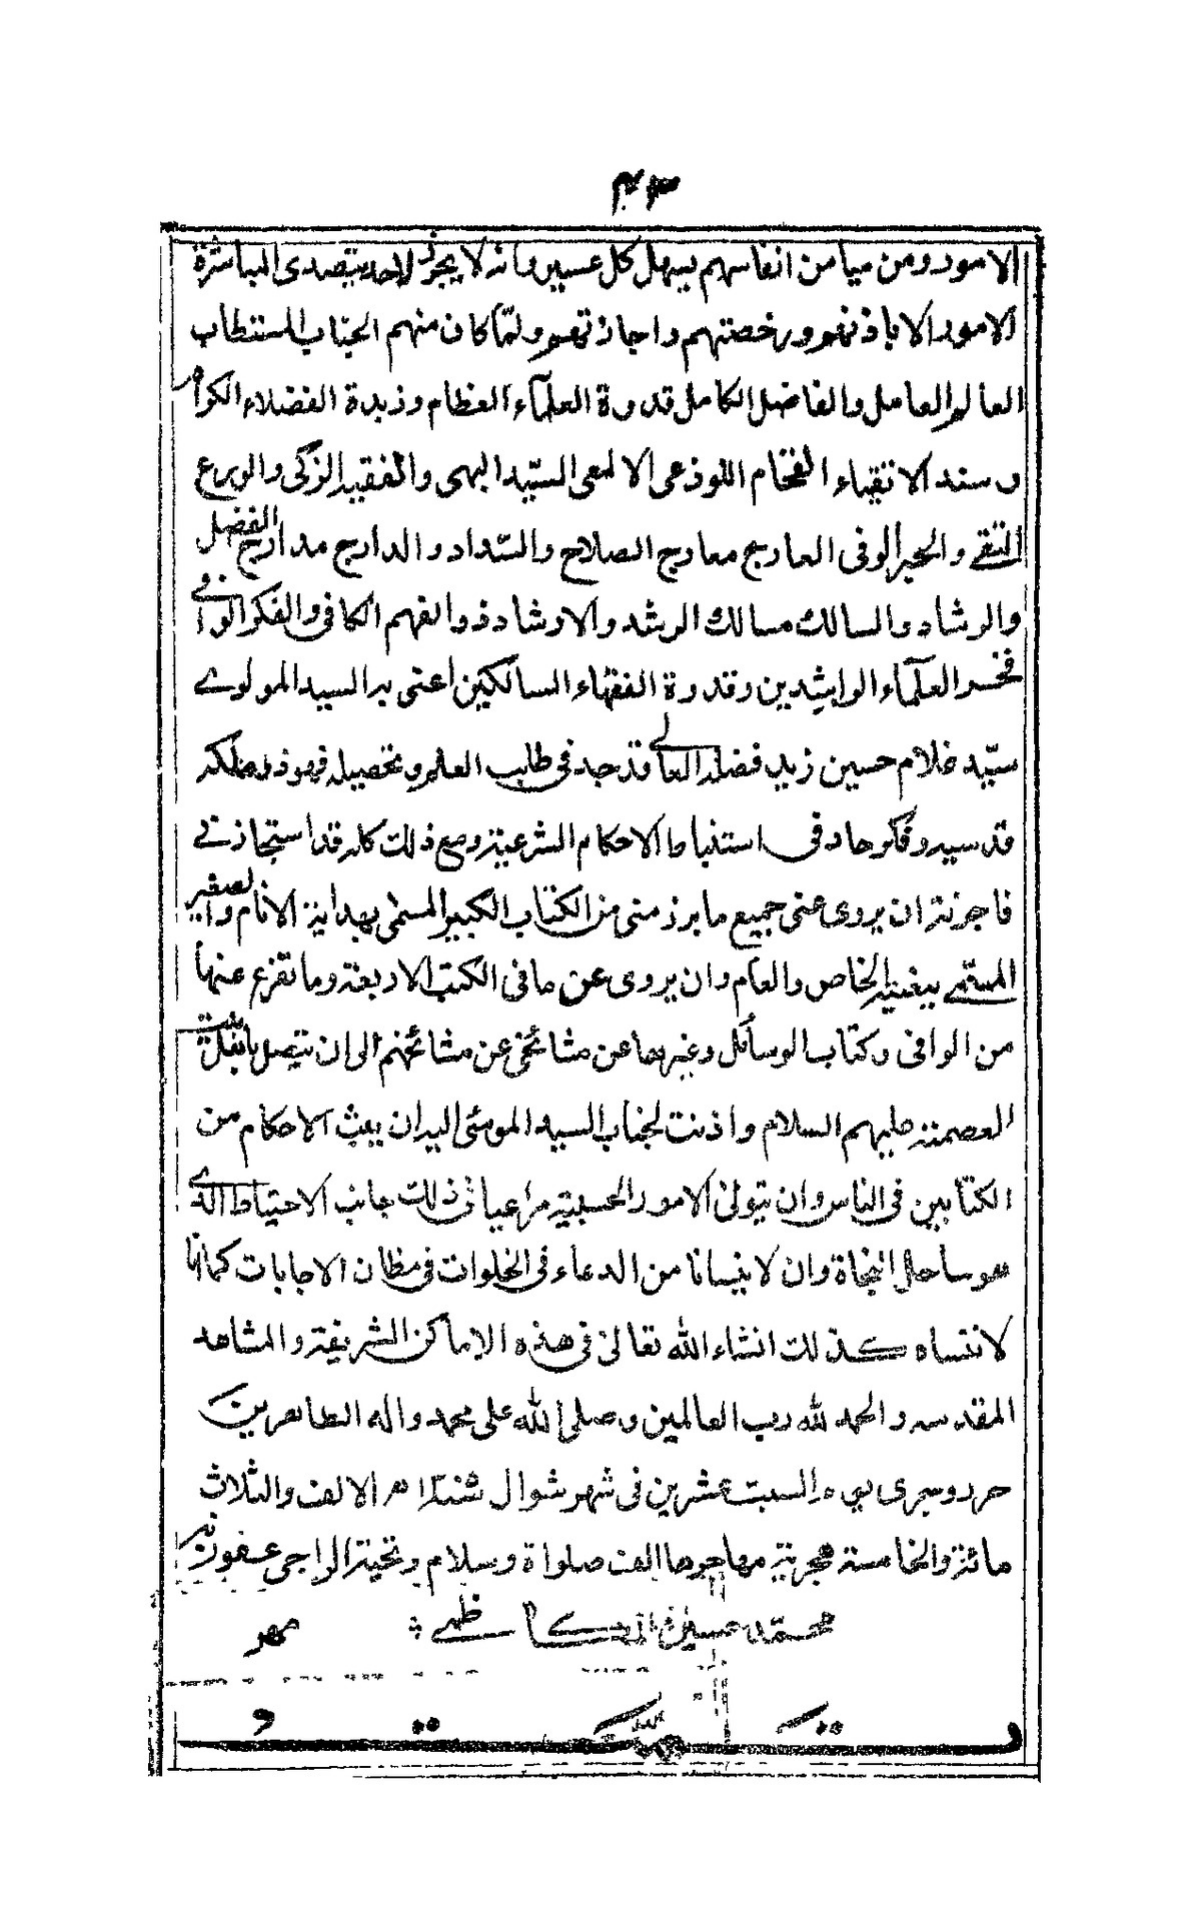 ٤٣
الامور ومن ميامن انفاسهم يسهل كل عسير وانه لا يجوز لاحد يتصدى المباشرة
الامور الا باذنهم ورخصتهم واجازتهم ولما كان منهم الجناب المستطاب
العالم العامل والفاضل الكامل قدوة العلماء العظام وزبدة الفضلاء الكرام
وسند الاتقياء الفخام اللوذعى الالمعى السيد البهى والفقيه الزكى والورع
التقے والحبر الوفى العارج معارج الصلاح والسداد والدارج مدارج الفضل
والرشاد والسالك مسالك الرشد والارشاد ذو الفهم الكافى والفكر الوافے
فخر العلماء الراشدين وقدوة الفقهاء السالكين اعنى به السيد المولوے
سيد غلام حسين زيد فضله العالے قد جد فى طلب العلم وتحصيله فهو ذو ملكه
قدسيه وفكر حاد فى استنباط الاحكام الشرعية ومع ذلك كله قد استجازنے
فاجزته ان يروى عنى جميع ما برز منى من الكتاب الكبير المسمى بهداية الانام والصغير
المسمے ببغية الخاص والعام وان يروى عن ما فى الكتب الاربعة وما تفرع عنها
من الوافى وكتاب الوسائل وغيرها عن مشائخى عن مشائخهم الى ان يتصل باهل بيت
العصمة عليهم السلام واذنت لجناب السيد المومئى اليه ان يبث الاحكام من
الكتابين فى الناس وان يتولى الامور الحسبية مراعيا فى ذلك جانب الاحتياط الذے
هو ساحل النجاة وان لا ينسانا من الدعاء فى الخلوات فى مظان الاجابات كما انا
لا ننساه كذلك انشاء الله تعالى فى هذه الاماكن الشريفة والمشاهد
المقدسه والحمد لله رب العالمين وصلى الله على محمد واله الطاهرين
حرر وجرى يوم السبت عشرين فى شهر شوال سنة الالف والثلاث
مائة والخامسة هجرية مهاجرها الف صلواة وسلام وتحية الراجى عفو ربه
محمد حسين الكاظمے مهر